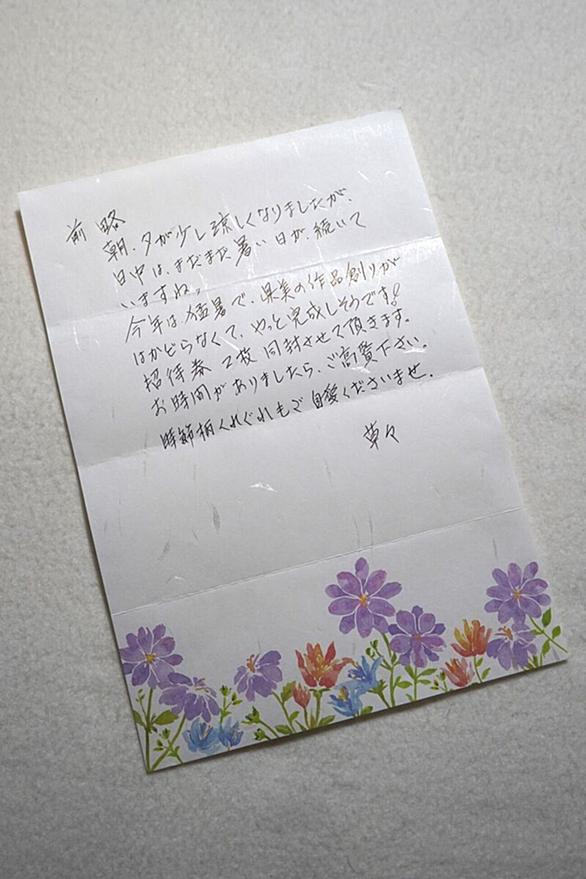 前略
朝、夕が少し涼しくなりましたが、
日中は、まだまだ暑い日が、続いて
いますね。
今年は猛暑で、県美の作品創りが
はかどらなくて、やっと完成しそうです!
招待券2枚同封させて頂きます。
お時間がありましたら、ご高覧下さい。
時節柄くれぐれもご自愛くださいませ。
草々